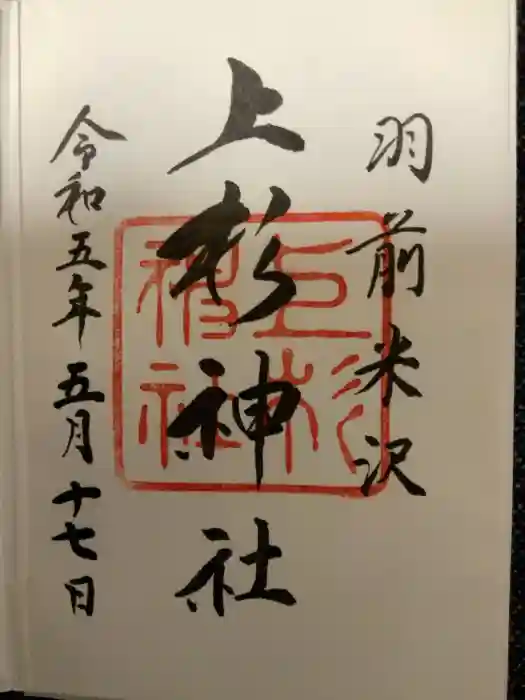 羽前米沢
上杉神社
令和五年五月十七日
上杉
神社